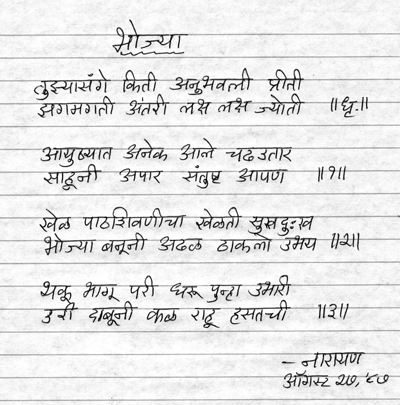 भोज्या
तुझ्यासंगे किती अनुभवली प्रीती
झगमगती अंतरी लक्ष लक्ष ज्योती ॥धृ.॥
आयुष्यात अनेक आले चढउतार
साहूनी अपार संतुष्ट आपण ॥१॥
खेळ पाठशिवणीचा खेळती सुखदुःख
भोज्या बनूनी अढळ ठाकलो उभय ॥२॥
थकू भागू परी धरू पुन्हा उभारी
उरी दाबूनी कळ राहू हसतची ॥३॥
– नारायण
ऑगस्ट २७, '८७